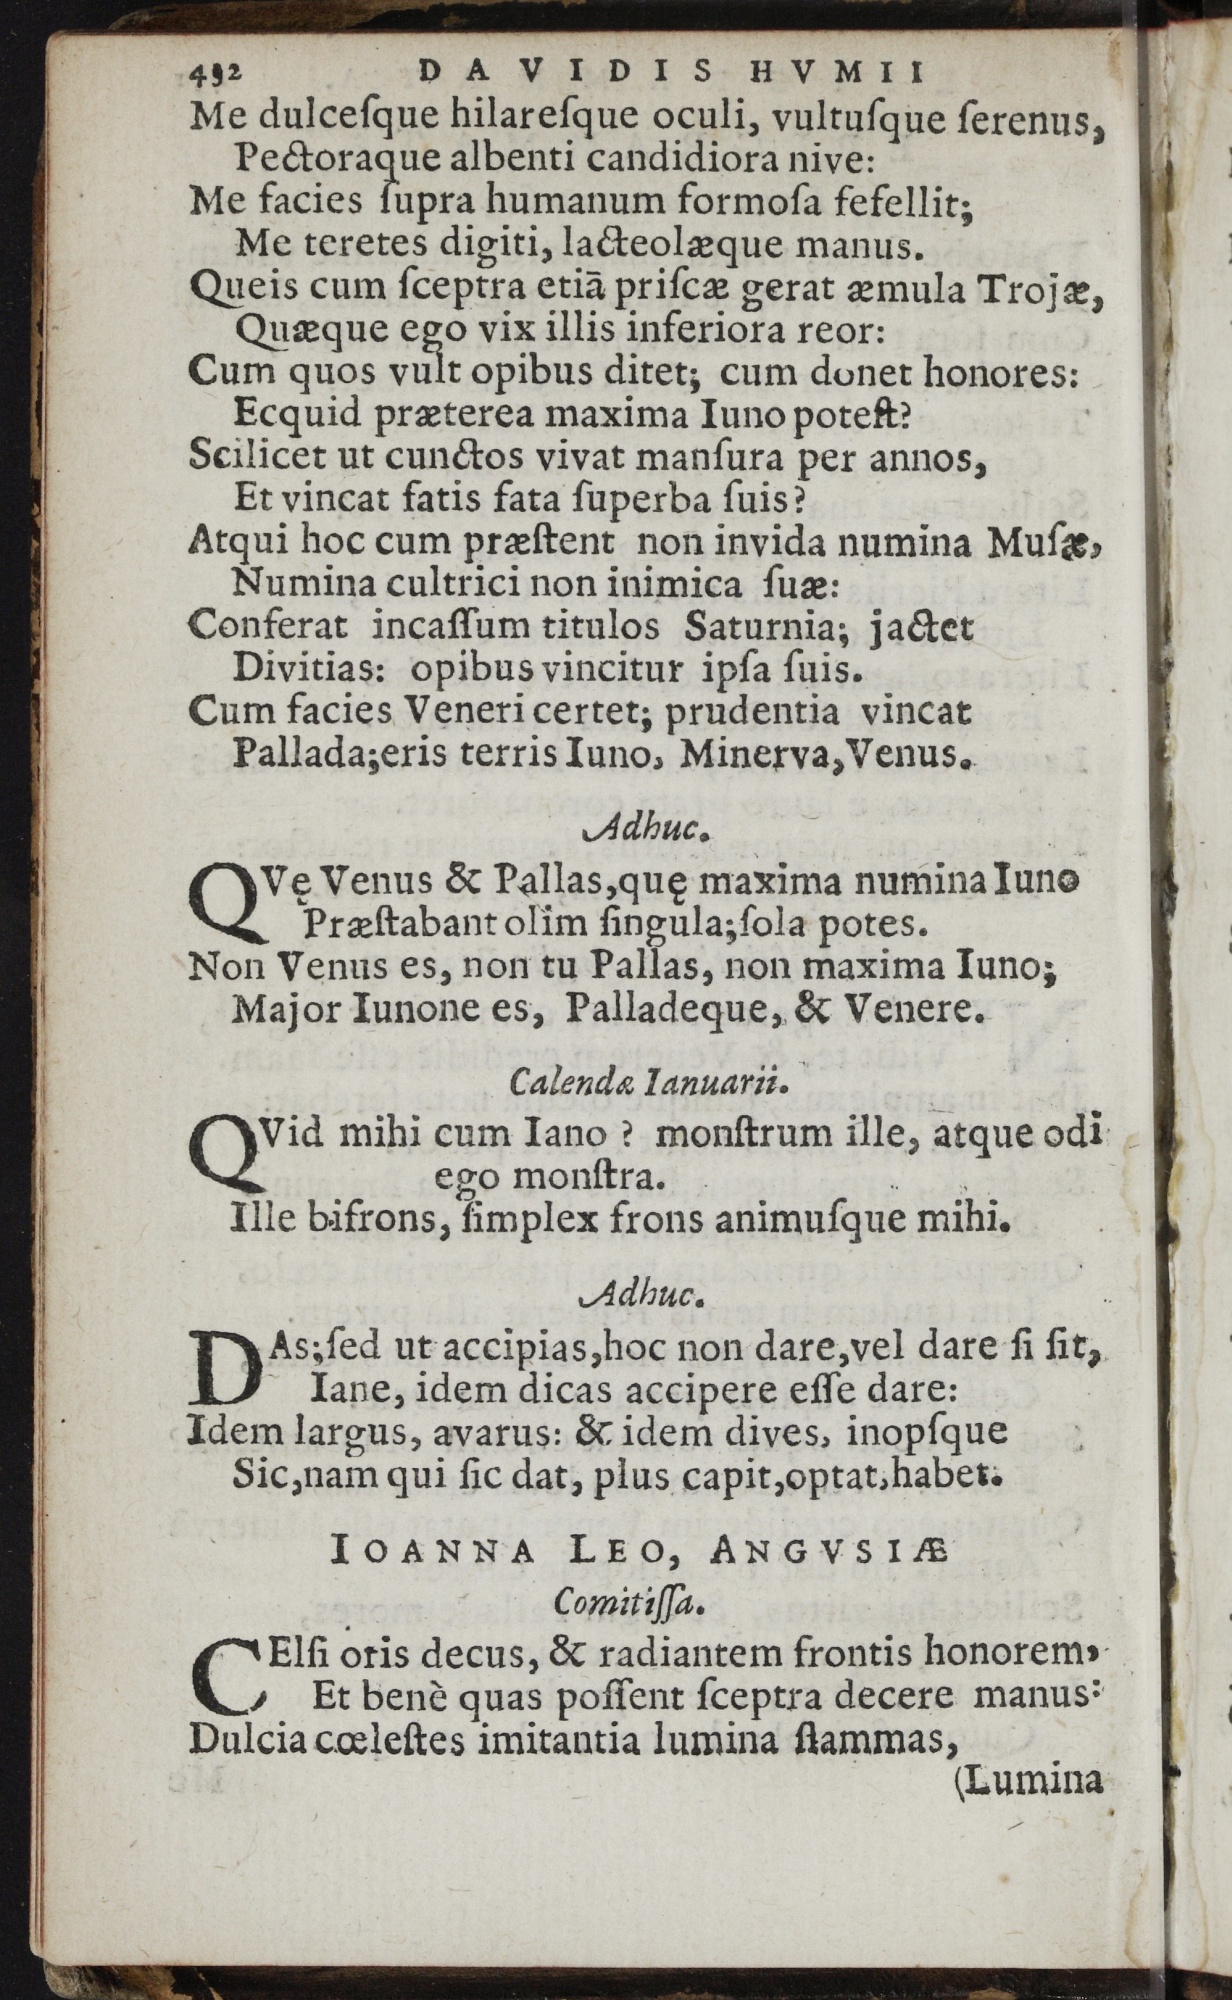 492 DAVIDIS HVMII
Me dulceſque hilareſque oculi, vultuſque ſerenus,
Pectoraque albenti candidiora nive:
Me facies ſupra humanum formoſa fefellit;
Me teretes digiti, lacteolæque manus.
Queis cum ſceptra etiā priſcæ gerat æmula Trojæ,
Quæque ego vix illis inferiora reor:
Cum quos vult opibus ditet; cum donet honores:
Ecquid præterea maxima Iuno poteſt?
Scilicet ut cunctos vivat manſura per annos,
Et vincat fatis fata ſuperba ſuis?
Atqui hoc cum præſtent non invida numina Muſæ,
Numina cultrici non inimica ſuæ:
Conferat incaſſum titulos Saturnia; jactet
Divitias: opibus vincitur ipſa ſuis.
Cum facies Veneri certet; prudentia vincat
Pallada; eris terris Iuno, Minerva, Venus.
Adhuc.
QVę Venus & Pallas, quę maxima numina Iuno
Præſtabant olim ſingula; ſola potes.
Non Venus es, non tu Pallas, non maxima Iuno;
Major Iunone es, Palladeque, & Venere.
Calendæ Ianuarii.
QVid mihi cum Iano ? monſtrum ille, atque odi
ego monſtra.
Ille bifrons, ſimplex frons animuſque mihi.
Adhuc.
DAs; ſed ut accipias, hoc non dare, vel dare ſi ſit,
Iane, idem dicas accipere eſſe dare:
Idem largus, avarus: & idem dives, inopſque
Sic, nam qui ſic dat, plus capit, optat, habet.
IOANNA LEO, ANGVSIÆ
Comitiſſa.
CElſi oris decus, & radiantem frontis honorem,
Et benè quas poſſent ſceptra decere manus:
Dulcia cœleſtes imitantia lumina flammas,
(Lumina